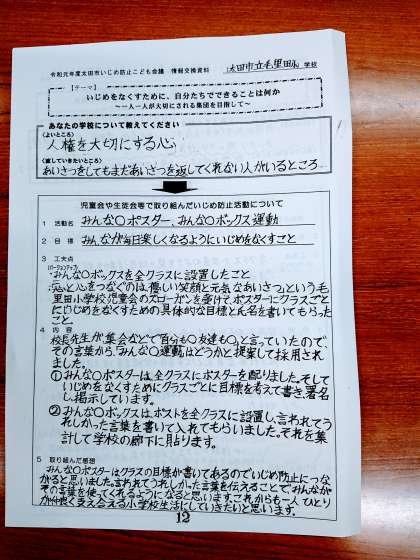 令和元年度太田市いじめ防止こども会議　情報交換資料　太田市立毛里田小学校
【テーマ】
いじめをなくすために、自分たちでできることは何か
～一人一人が大切にされる集団を目指して～
あなたの学校について教えてください
〈よいところ〉
人権を大切にする心
〈直していきたいところ〉
あいさつをしてもまだあいさつを返してくれない人がいるところ
児童会や生徒会等で取り組んだいじめ防止活動について
1　活動名　みんな〇ポスター、みんな〇ボックス運動
2　目標　みんなが毎日楽しくなるようにいじめをなくすこと
3　工夫点
(バージョンアップ)
・みんな〇ボックスを全クラスに設置したこと
・「心と心をつなぐのは、優しい笑顔と元気なあいさつ」という毛
里田小学校児童会のスローガンを受けて、ポスターにクラスごと
にいじめをなくすための具体的な目標と氏名を書いてもらった
こと。
4　内容
校長先生が集会などで「自分も〇友達も〇」と言っていたので
その言葉から、「みんな〇運動はどうかと提案して採用され
ました。
①みんな〇ポスターは、全クラスにポスターを配りました。そして
いじめをなくすためにクラスごとに目標を考えて書き、署名
し掲示しています。
②みんな〇ボックスは、ポストを全クラスに設置し、言われてう
れしかった言葉を書いて入れてもらいました。それを集
計して学校の廊下に貼ります。
5　取り組んだ感想
みんな〇ポスターはクラスの目標が書いてあるのでいじめ防止につな
がると思いました。言われてうれしかった言葉を伝えることで、みんなが
その言葉を使ってくれるようになると思います。これからも一人ひとり
が仲良く支え合える小学校生活にしていきたいと思います。
12